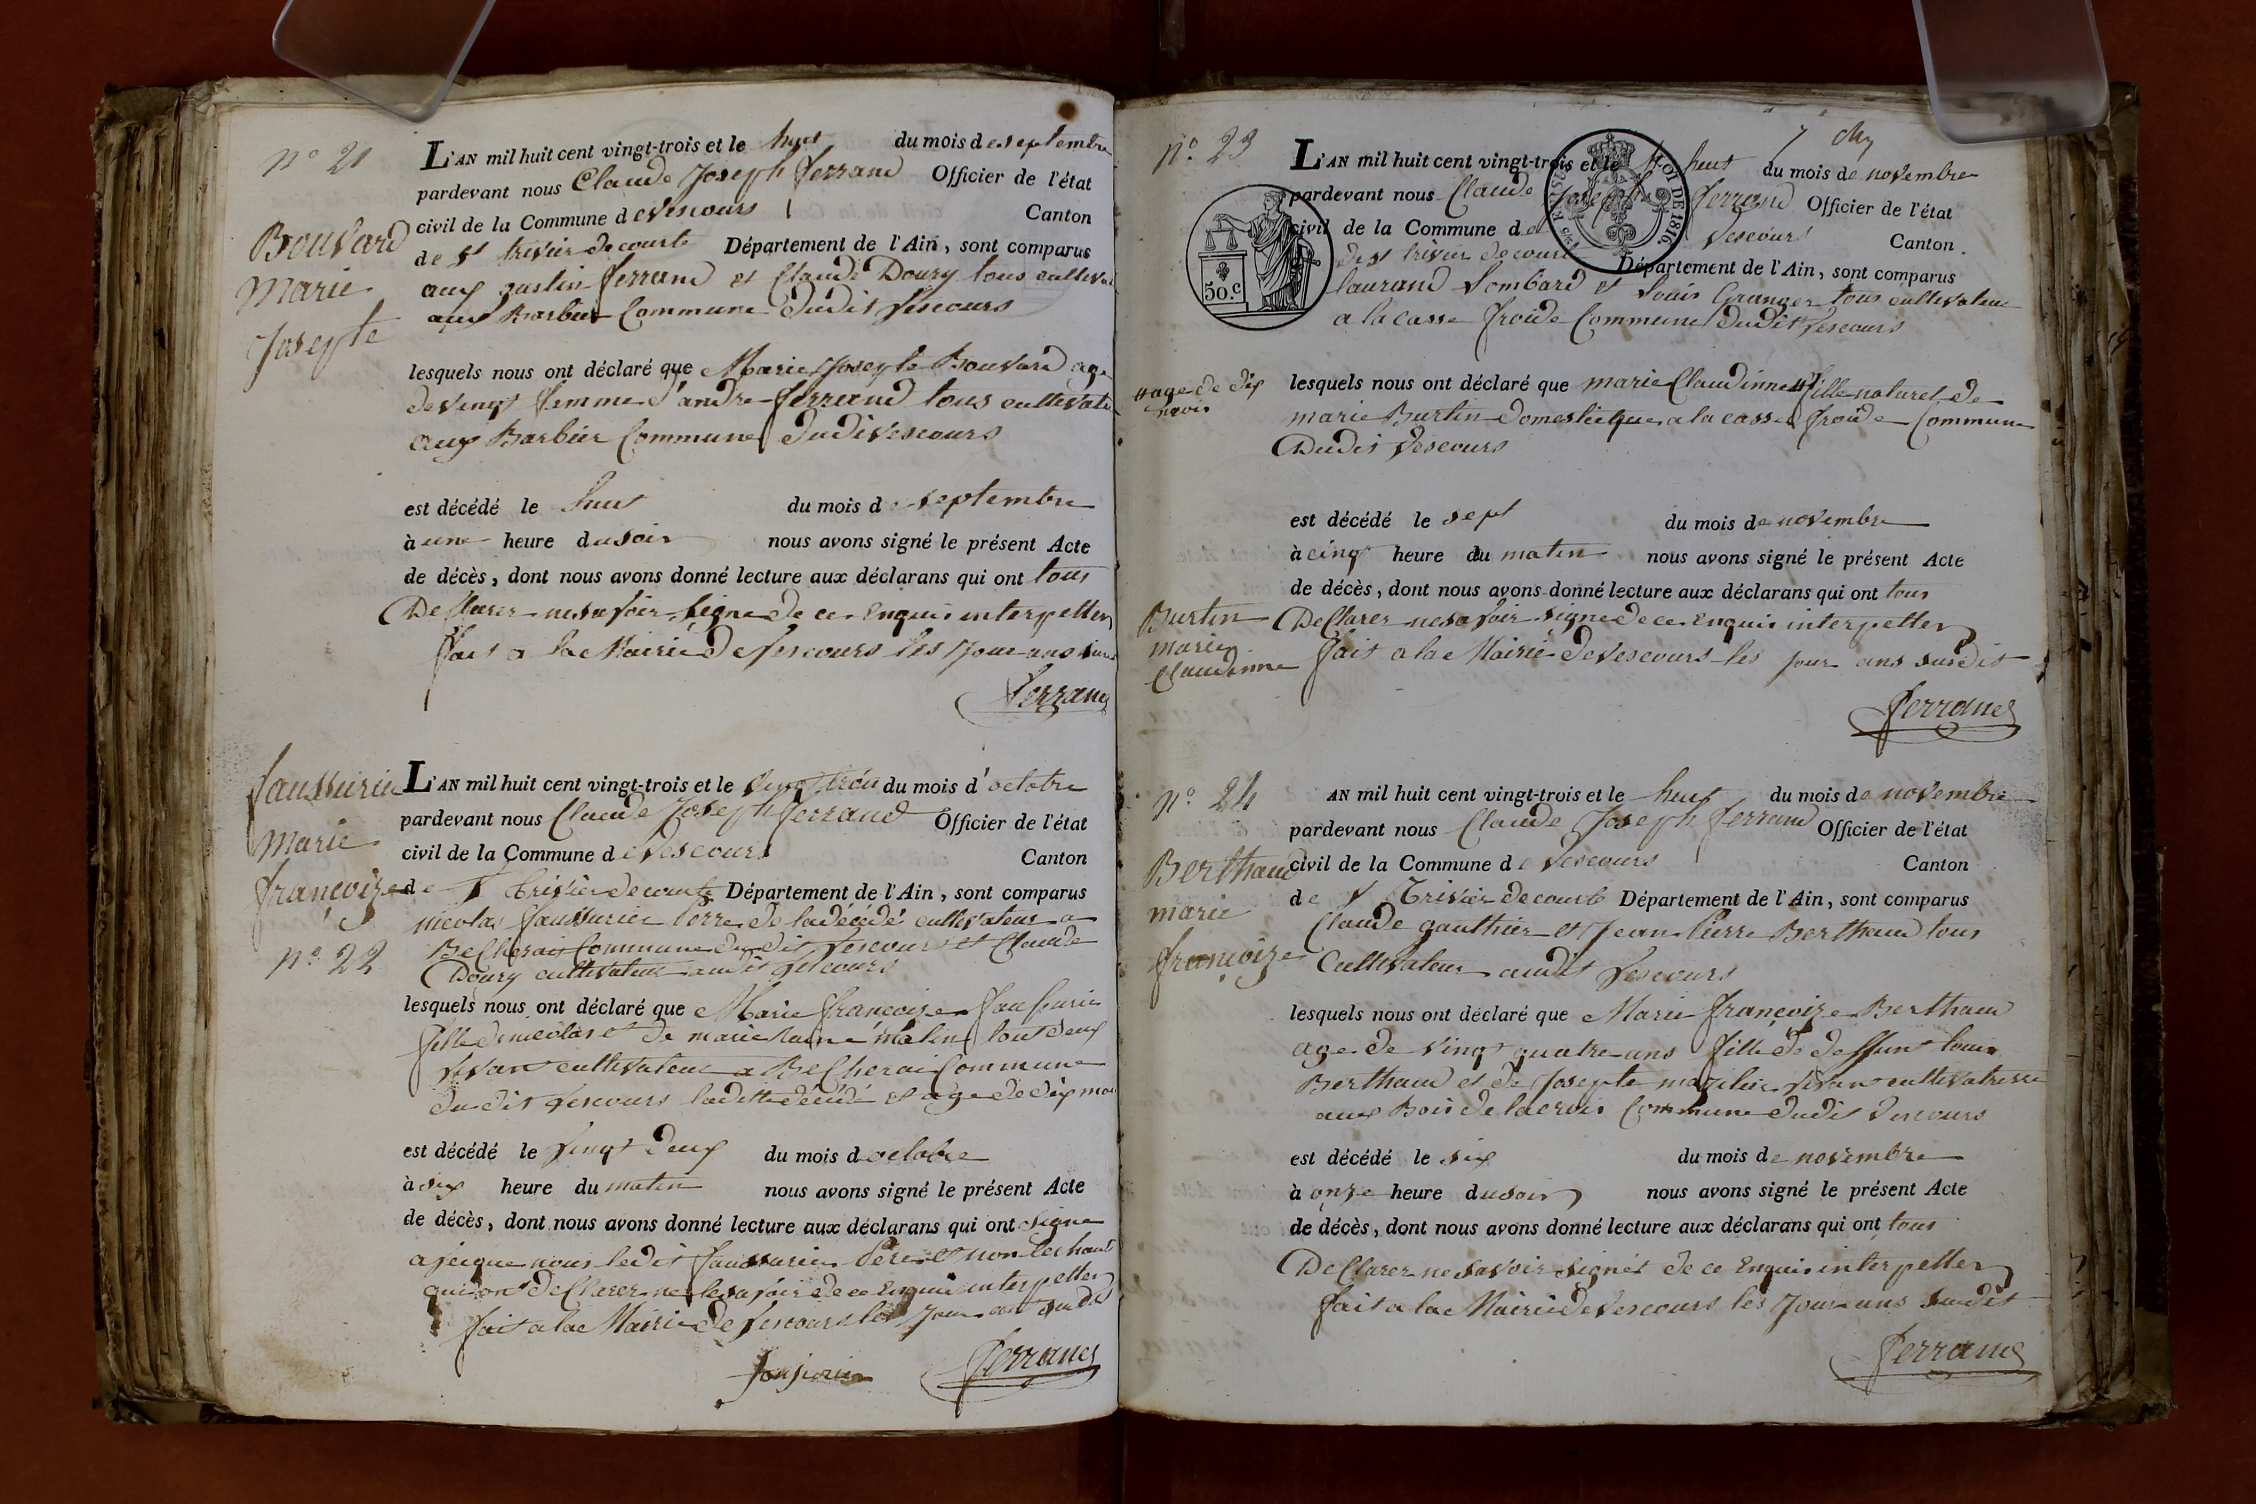 n.° 21
Bouvard
Marie
Josepte
L'AN mil huit cent vingt-trois et le huit du mois de septembre
pardevant nous Claude Joseph ferrand Officier de l'état
civil de la Commune de vescours Canton
de st trivier de courte Département de l'Ain, sont comparus
aux justin ferrand et Claude Doury tous cultivat
aux Barbier Commune dudit vescours
lesquels nous ont déclaré que Marie Josepte Bouvard age
de vingt femme d'andre ferrand tous cultivate
aux Barbier Commune dudi vescours
est décédé le huit du mois de septembre
à une heure du soir nous avons signé le présent Acte
de décès, dont nous avons donné lecture aux déclarans qui ont tous
Declarer ne savoir signe de ce Enquis interpeller
fait a la Mairie de vescours les jour ans
ferrand
faussurier
Marie
françoize
n.° 22
L'AN mil huit cent vingt-trois et le vingt trois du mois d'octobre
pardevant nous Claude Joseph ferrand Officier de l'état
civil de la Commune de vescours Canton
de st Trivier de courte Département de l'Ain, sont comparus
nicolas faussurier Perre de la décédé cultivateur a
Becherai Commune dudit vescours et Claude
Doury cultivateur audit vescours
lesquels nous ont déclaré que Marie françoize faussurier
fille de nicolas et de marie matin tout deux
vivant cultivateur a Becherai Commune
dudit vescours laditte décédé et age de dix moi
est décédé le vingt deux du mois d octobre
à six heure du matin nous avons signé le présent Acte
de décès, dont nous avons donné lecture aux déclarans qui ont signe
aveique nous ledit faussurier Pere et non
qui ont Declarer ne le savoir de ce Enquis interpeller
fait a la Mairie de vescours les jour ans susdit
ferrand
n.° 23
7
L'AN mil huit cent vingt-trois et le huit du mois de novembre
pardevant nous Claude Joseph ferrand Officier de l'état
civil de la Commune de vescours Canton
de st trivier de courte Département de l'Ain, sont comparus
LOI DE 1816
50.c
laurand Lombard et Louis Granger tous cultivateur
a la casse froide Commune dudit vescours
age de dix
mois
lesquels nous ont déclaré que marie Claudinne fille naturel de
marie Burtin domestique a la casse froide Commune
Dudit vescours
est décédé le sept du mois de novembre
à cinq heure du matin nous avons signé le présent Acte
de décès, dont nous avons donné lecture aux déclarans qui ont tous
Burtin
marie
Claudinne
Declarer ne savoir signe de ce Enquis interpeller
fait a la Mairie de vescours les jour ans susdit
ferrand
n.° 24
Berthaud
marie
françoize
AN mil huit cent vingt-trois et le huit du mois de novembre
pardevant nous Claude Joseph ferrand Officier de l'état
civil de la Commune de vescours Canton
de st Trivier de courte Département de l'Ain, sont comparus
Claude gauthier et Jean Pierre Berthaud tous
Cultivateur audit vescours
lesquels nous ont déclaré que Marie françoize Berthaud
age de vingt quatre ans fille de deffunt louis
Berthaud et de Josepte vivant cultivatresse
aux Bois de la crois Commune dudit vescours
est décédé le six du mois de novembre
à onze heure du soir nous avons signé le présent Acte
de décès, dont nous avons donné lecture aux déclarans qui ont tous
Declarer ne savoir signer de ce Enquis interpeller
fait a la Mairie de vescours les jour ans susdit
ferrand